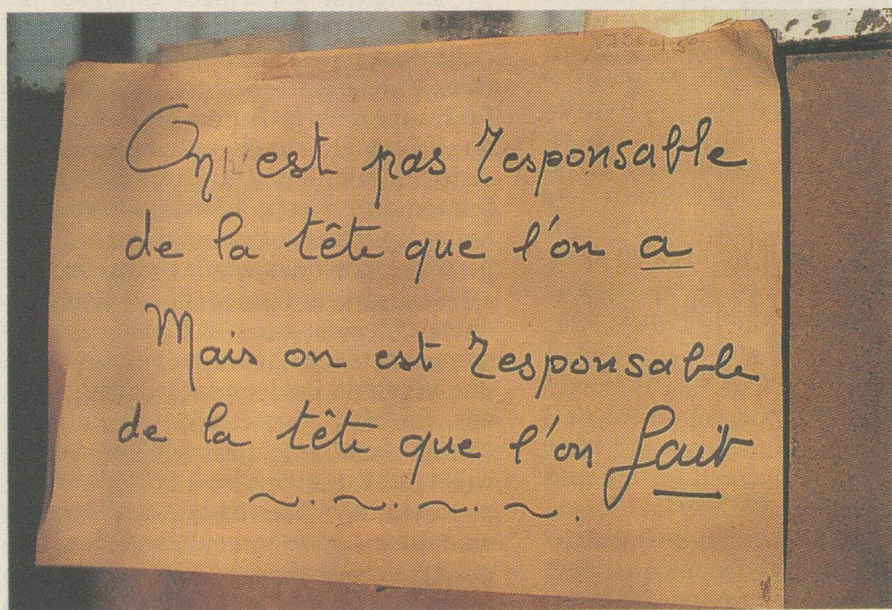 On n'est pas responsable
de la tête que l'on a
Mais on est responsable
de la tête que l'on fait